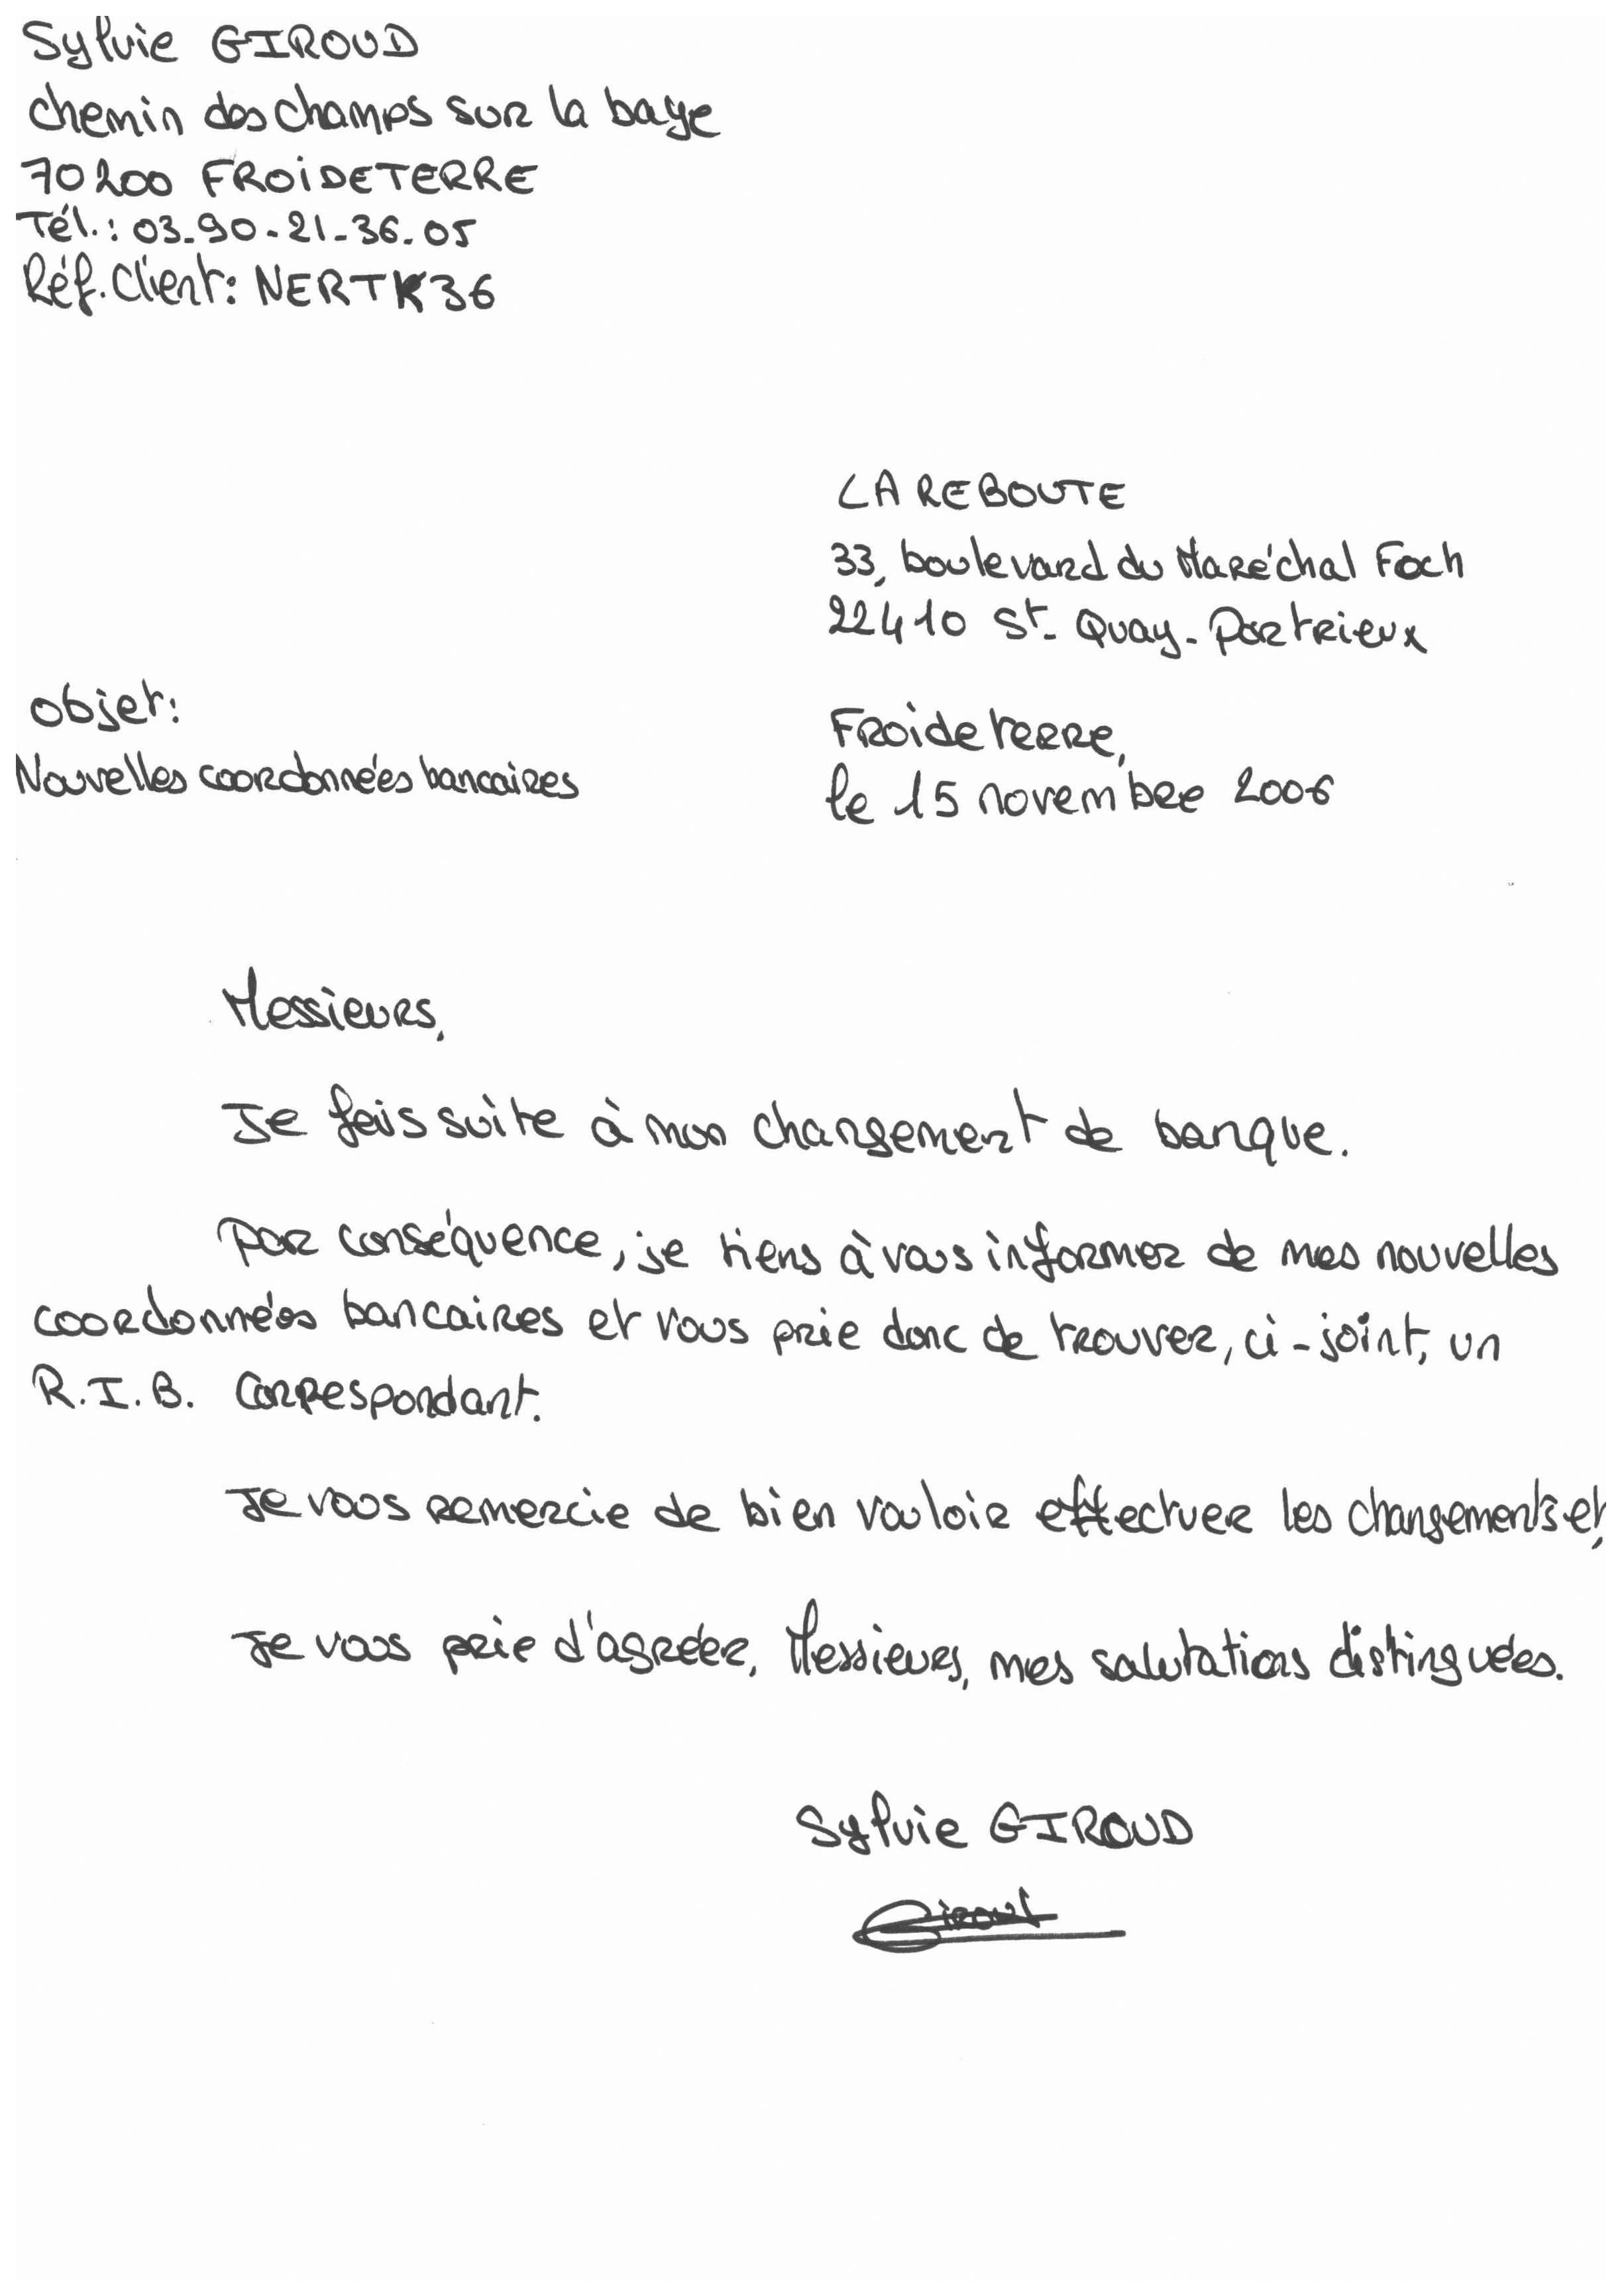 Sylvie GIROUD
chemin des champs sur la baye
70200 FROIDETERRE
Tél.: 03-90-21-36-05
Réf. Client: NERTK36
LA REBOUTE
33, boulevard du Maréchal Foch
22410 St-Quay-Portrieux
objet:
Nouvelles coordonnées bancaires
Froideterre,
le 15 novembre 2006
Messieurs,
Je fais suite à mon changement de banque.
Par conséquence, je tiens à vous informer de mes nouvelles
coordonnées bancaires et vous prie donc de trouver, ci-joint, un
R.I.B. correspondant.
Je vous remercie de bien vouloir effectuer les changements et,
Je vous prie d'agréer, Messieurs, mes salutations distinguées.
Sylvie GIROUD
Giroud